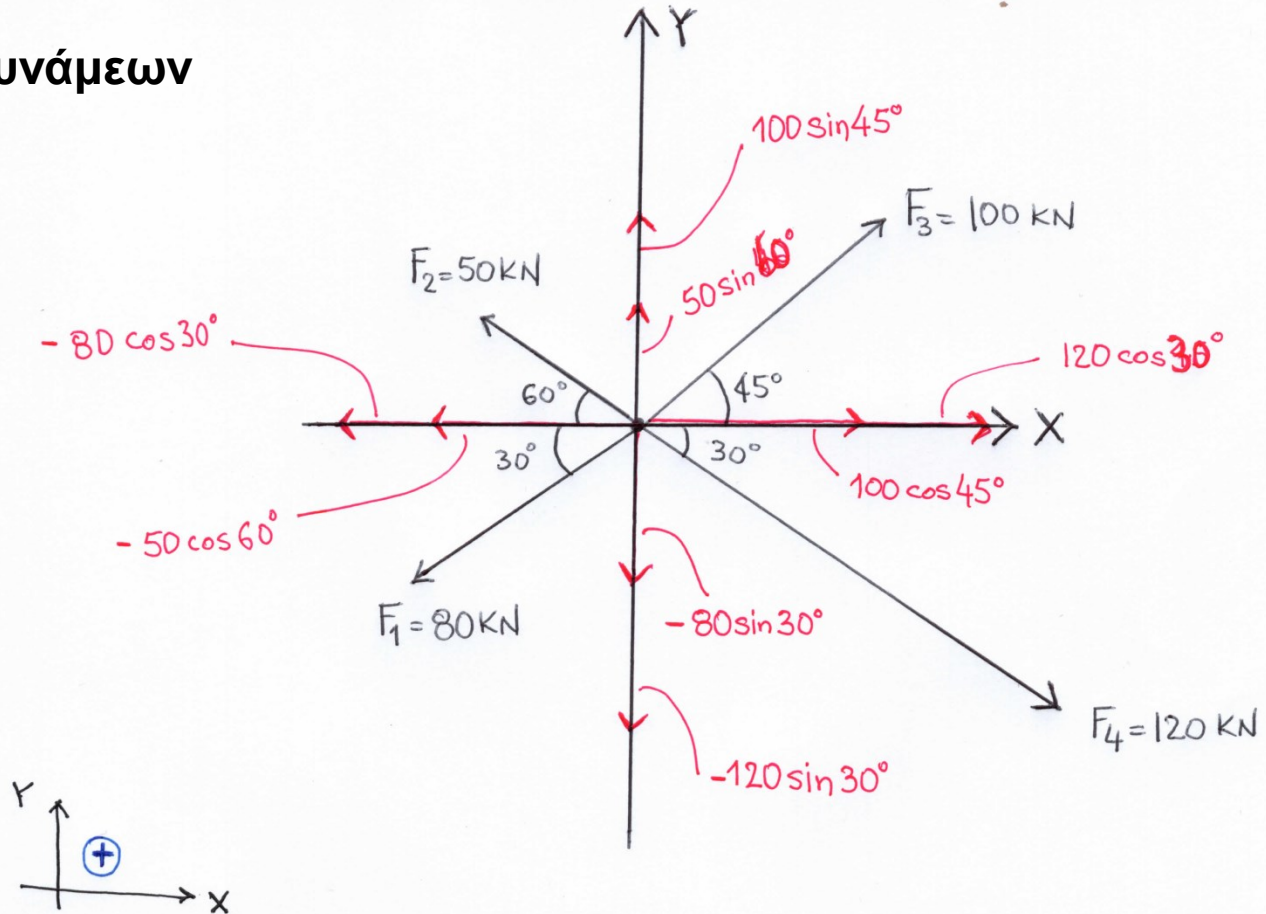 υνάμεων
Y
100 sin 45°
F₃ = 100 KN
F₂ = 50 KN
50 sin 60°
- 80 cos 30°
120 cos 30°
60°
45°
X
30°
30°
100 cos 45°
- 50 cos 60°
F₁ = 80 KN
- 80 sin 30°
F₄ = 120 KN
-120 sin 30°
Y
+
X